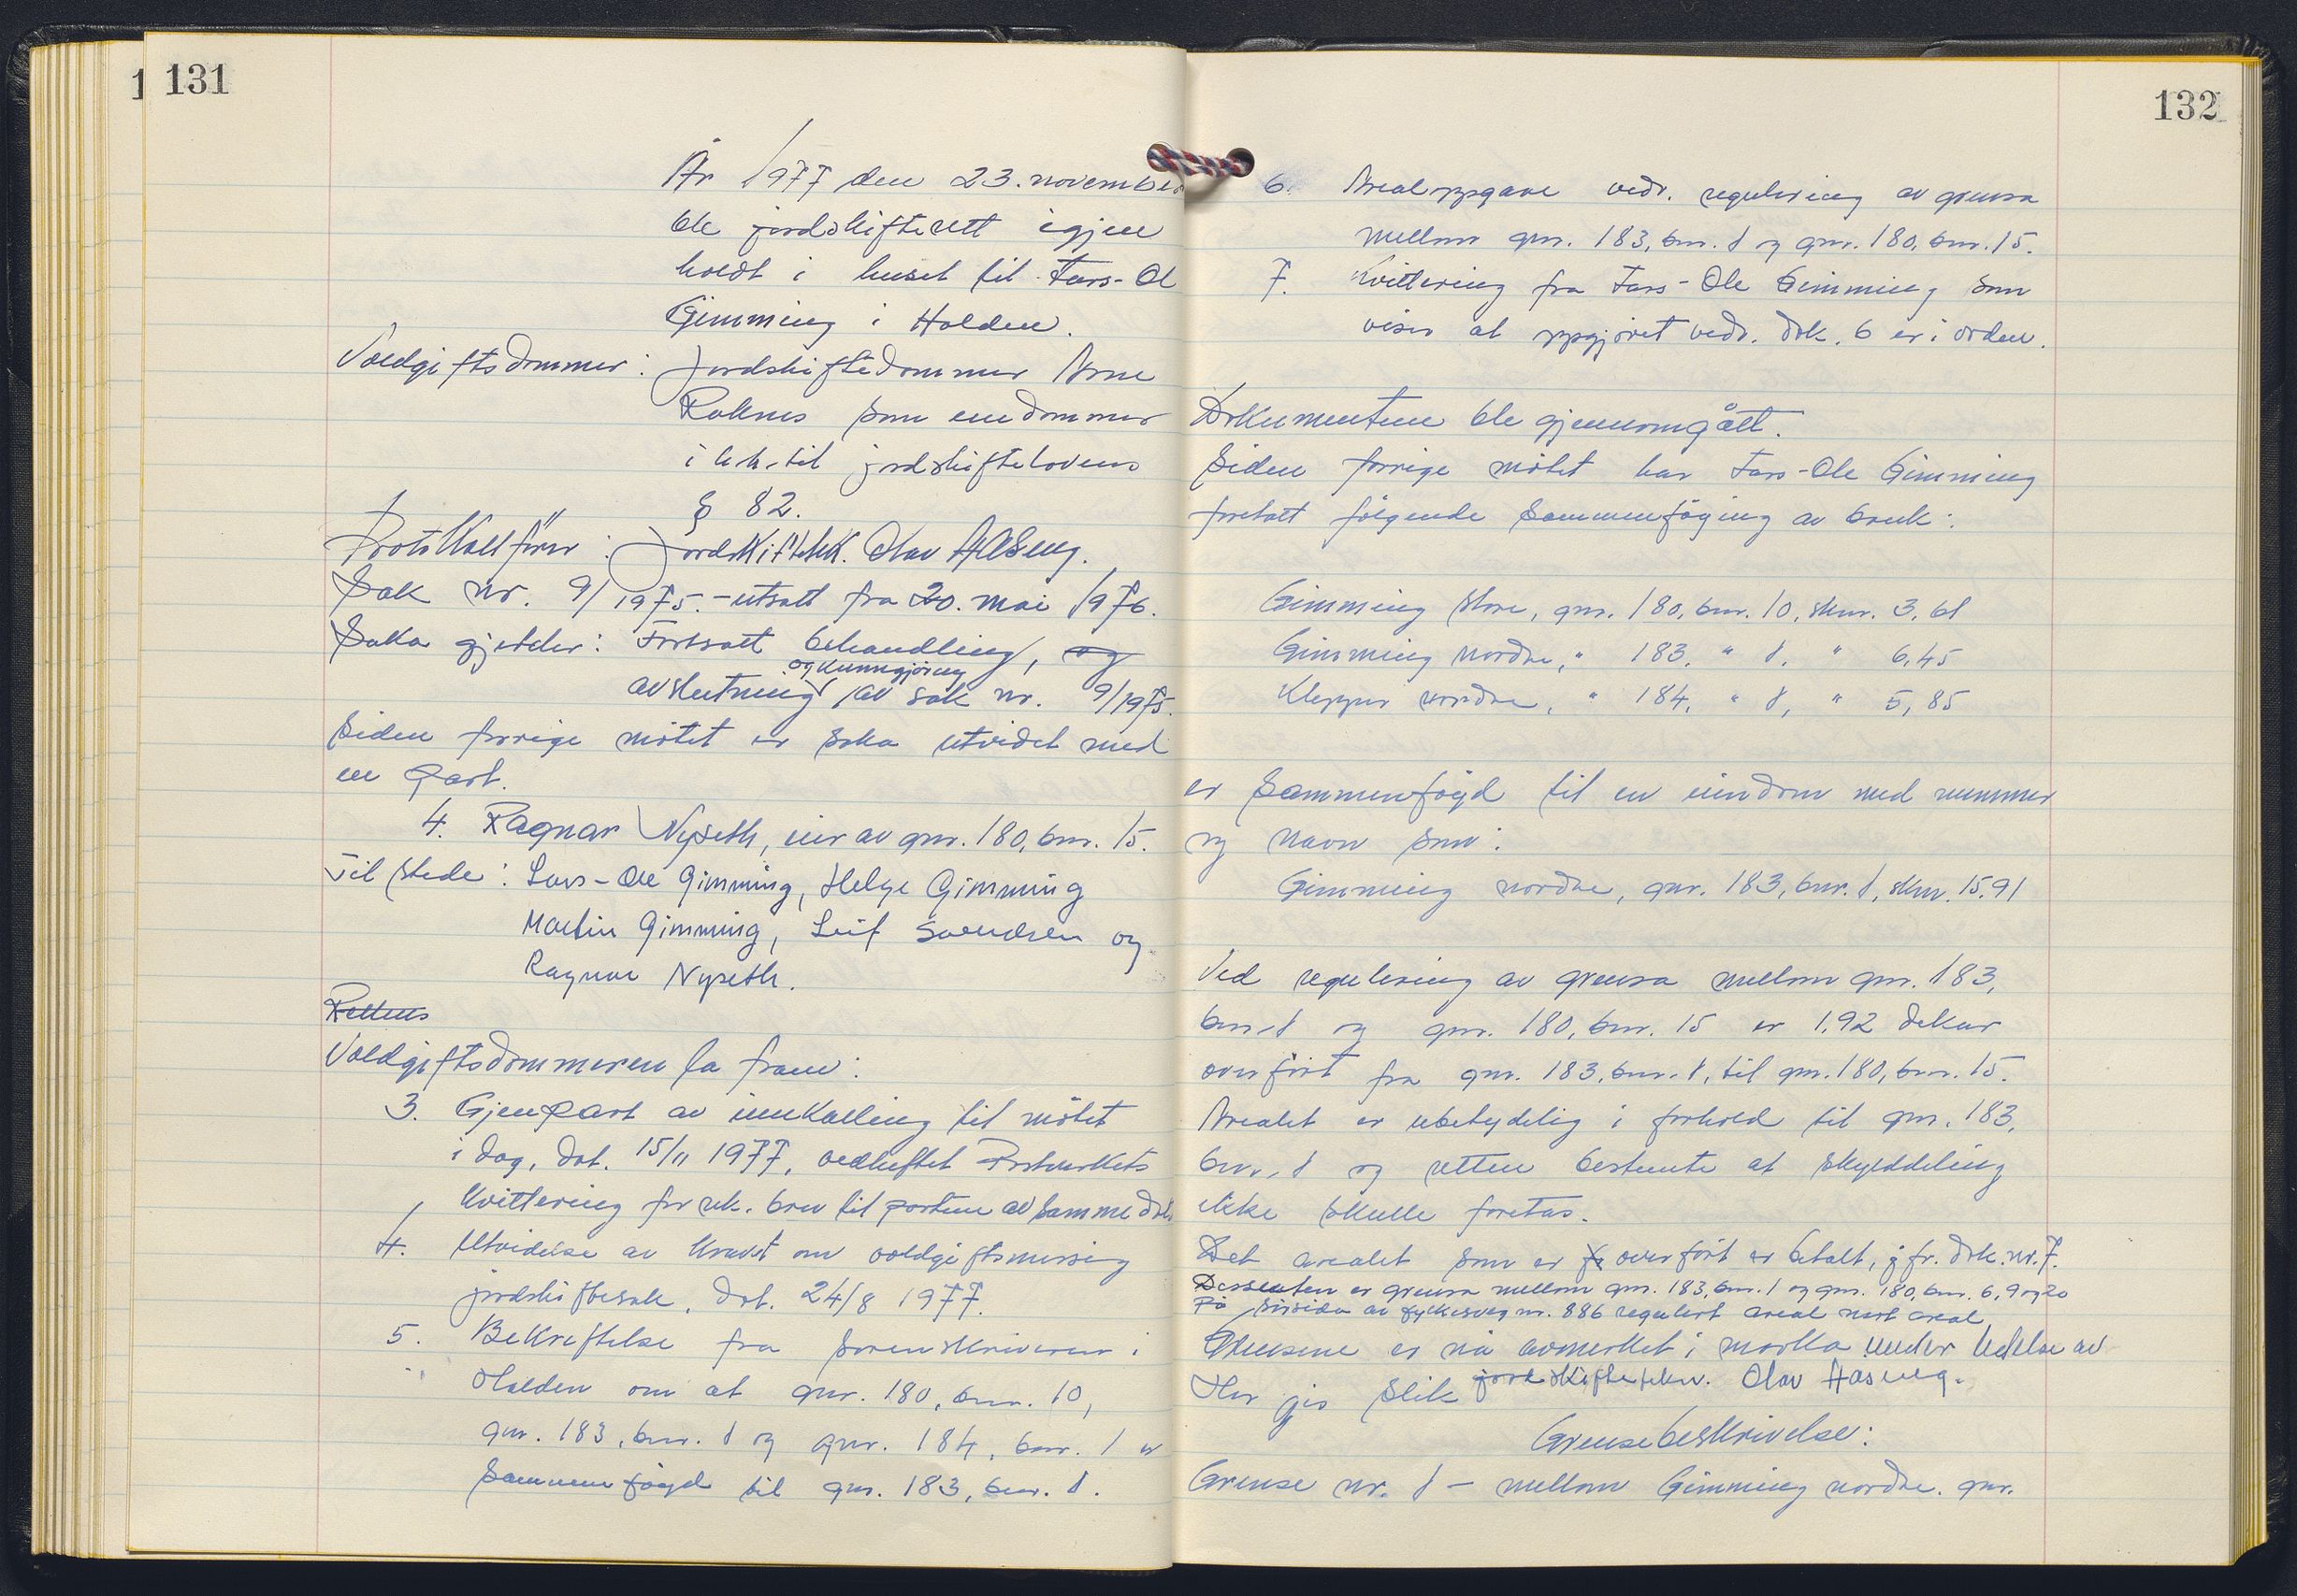 131
År 1977 den 23. november
ble jordskifterett igjen
holdt i huset til Lars-Ol
Gimming i Halden.
Voldgiftsdommer: Jordskiftedommer Arne
Roknes som enedommer
i h.h. til jordskiftelovens
§ 82.
Protokollfører: Jordskiftekk. Olav Aaseng.
Sak nr. 9/1975. - utsatt fra 20. mai 1976.
Saka gjelder: Fortsatt behandling, og
og kunngjøring
avslutning av sak nr. 9/1975.
Siden forrige møtet er saka utvidet med
en part.
4. Ragnar Nyseth, eier av gnr. 180, bnr. 15.
Til stede: Lars-Ole Gimming, Helge Gimming
Martin Gimming, Leif Svendsen og
Ragnar Nyseth.
Rettens
Voldgiftsdommeren la fram:
3. Gjenpart av innkalling til møtet
i dag, dat. 15/11 1977, vedheftet Postverkets
kvittering for rek. brev til partene av samme dato
4. Utvidelse av kravet om voldgiftsmessig
jordskiftesak, dat. 24/8 1977.
5. Bekreftelse fra sorenskriveren i
Halden om at gnr. 180, bnr. 10,
gnr. 183, bnr. 1 og gnr. 184, bnr. 1 er
sammenføyd til gnr. 183, bnr. 1.
132
6. Arealoppgave vedr. regulering av grensa
mellom gnr. 183, bnr. 1 og gnr. 180, bnr. 15.
7. Kvittering fra Lars-Ole Gimming som
viser at oppgjøret vedr. dok. 6 er i orden.
Dokumentene ble gjennomgått.
Siden forrige møtet har Lars-Ole Gimming
foretatt følgende sammenføying av bruk:
Gimming store, gnr. 180, bnr. 10, skm. 3,61
Gimming nordre, " 183, " 1, " 6,45
Klepper nordre, " 184, " 1, " 5,85
er sammenføyd til en eiendom med nummer
og navn som:
Gimming nordre, gnr. 183, bnr. 1, skm. 15.91
Ved regulering av grensa mellom gnr. 183,
bnr. 1 og gnr. 180, bnr. 15 er 1,92 dekar
overført fra gnr. 183, bnr. 1, til gnr. 180, bnr. 15.
Arealet er ubetydelig i forhold til gnr. 183,
bnr. 1 og retten bestemte at skylddeling
ikke skulle foretas.
Det arealet som er fo overført er betalt, jfr. dok. nr. 7.
Dessuten er grensa mellom gnr. 183, bnr. 1 og gnr. 180, bnr. 6, 9 og 20
på sørsida av fylkesveg nr. 886 regulert areal mot areal
Grensene er nå avmerket i marka under ledelse av
Her gis slik jordskiftekn. Olav Aaseng.
Grensebeskrivelse:
Grense nr. 1 - mellom Gimming nordre, gnr.